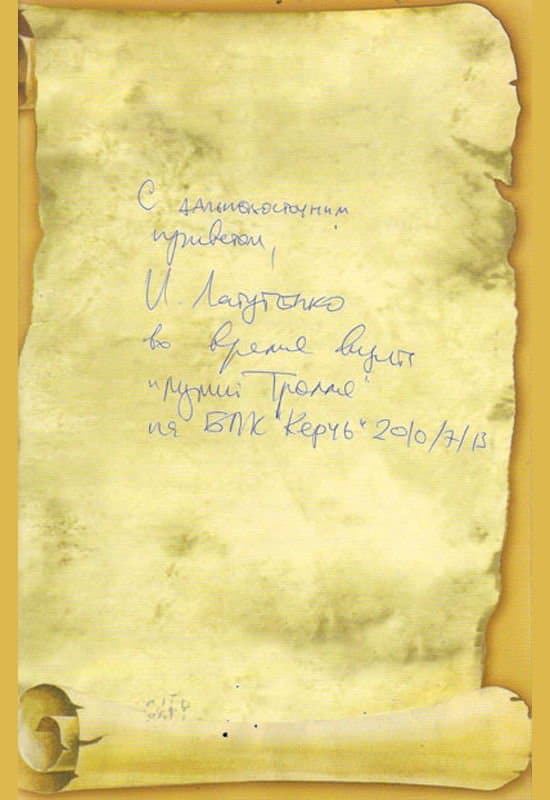 С дальневосточним
приветом,
И. Лагутенко
во время визита
"Мумий Тролля"
на БПК "Керчь" 2010/7/13